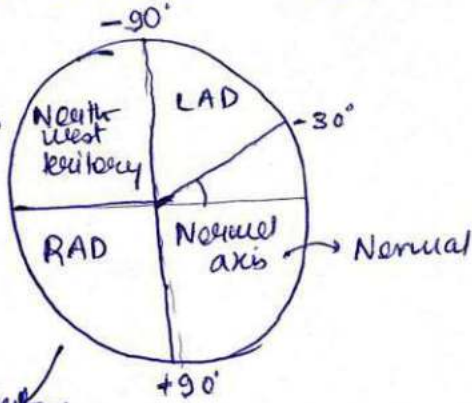 -90°
North
west
teritory
LAD
-30°
RAD
Normal
axis
Normal
+90°